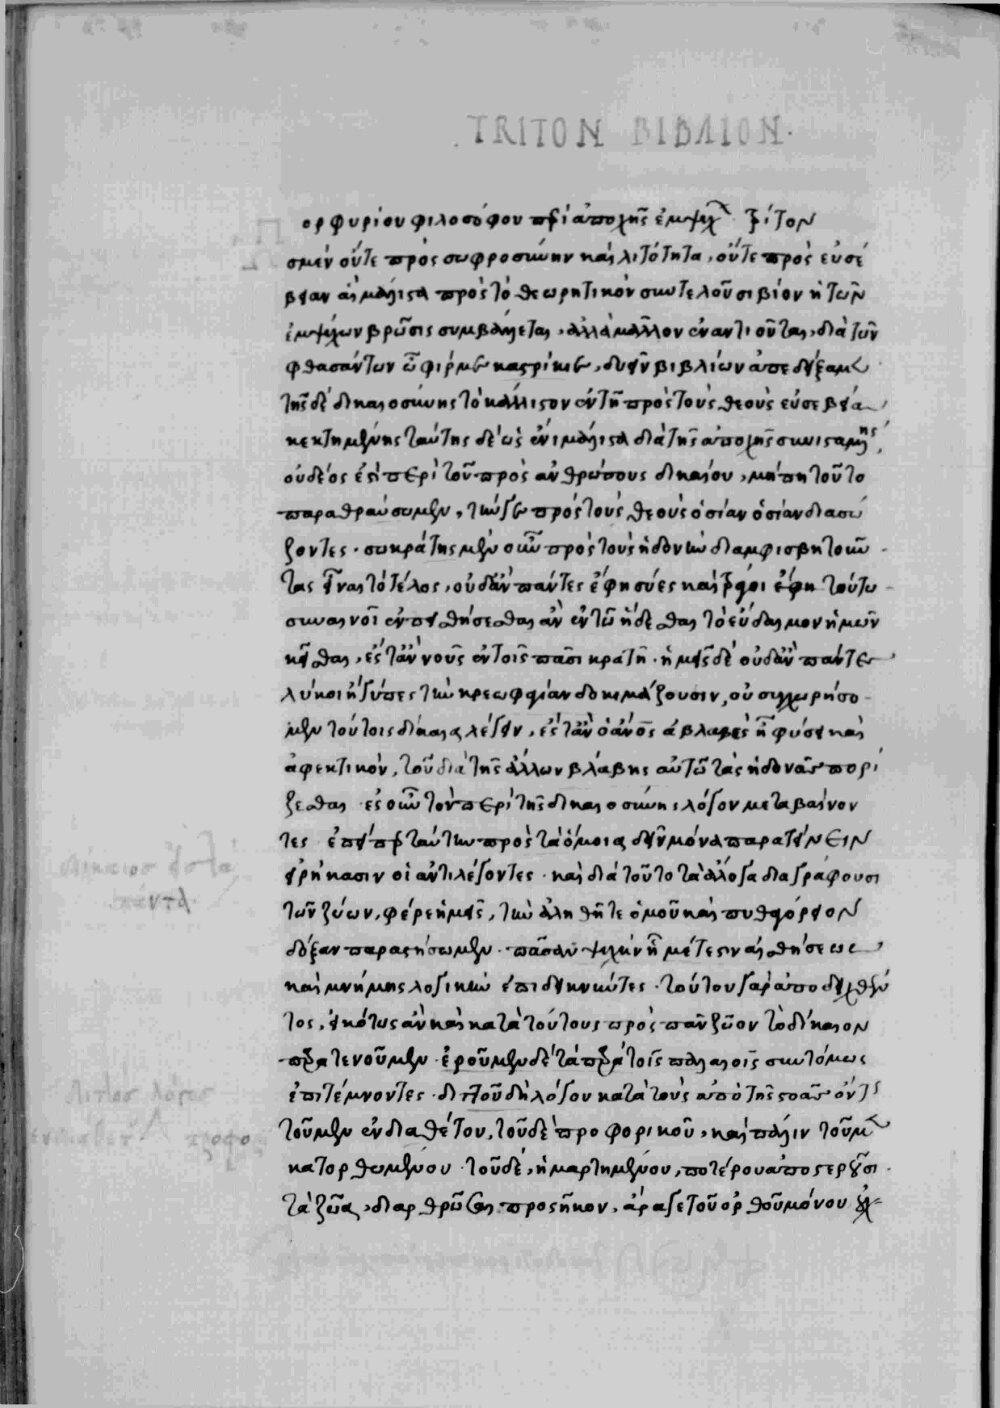 ΤΡΙΤΟΝ ΒΙΒΛΙΟΝ.
ορφυρίου φιλοσόφου περὶ ἀποχῆς ἐμψύχων τρίτον
σμὲν οὔτε πρὸς σωφροσύνην καὶ λιτότητα, οὔτε πρὸς εὐσέ
βειαν αἳ μάλιστα πρὸς τὸ θεωρητικὸν συντελοῦσι βίον ἡ τῶν
ἐμψύχων βρῶσις συμβάλλεται, ἀλλὰ μᾶλλον ἐναντιοῦται, διὰ τῶν
φθασάντων ὦ φίρμε καστρίκιε, δυεῖν βιβλίων ἀπεδείξαμεν
τῆς δὲ δικαιοσύνης τὸ κάλλιστον ἐν τῇ πρὸς τοὺς θεοὺς εὐσεβεία
κεκτημένης ταύτης δὲ ὡς ἔνι μάλιστα διὰ τῆς ἀποχῆς συνισταμένης,
οὐ δέος ἐστὶ περὶ τοῦ πρὸς ἀνθρώπους δικαίου, μή πη τοῦτο
παραθραύσωμεν, τήν γε πρὸς τοὺς θεοὺς ὁσίαν ὁσίαν διασώ
ζοντες. σωκράτης μὲν οὖν πρὸς τοὺς ἡδονὴν διαμφισβητοῦν
τας εἶναι τὸ τέλος, οὐδ' ἂν πάντες ἔφη σύες καὶ τράγοι ἔφη τούτω
συναινοῖεν πεισθήσεσθαι ἂν ἐν τῷ ἥδεσθαι τὸ εὔδαιμον ἡμῶν
κεῖσθαι, ἔστ' ἂν νοῦς ἐν τοῖς πᾶσι κρατῇ. ἡμεῖς δὲ οὐδ' ἂν πάντες
λύκοι ἢ γῦπες τὴν κρεωφαγίαν δοκιμάζουσιν, οὐ συγχωρήσο
μεν τούτοις δίκαια λέγειν, ἔστ' ἂν ὁ ἄνθρωπος ἀβλαβὲς ᾖ φύσει καὶ
ἀφεκτικὸν, τοῦ διὰ τῆς ἄλλων βλάβης αὑτῷ τὰς ἡδονὰς πορί
ζεσθαι. ἐς οὖν τὸν περὶ τῆς δικαιοσύνης λόγον μεταβαίνον
τες ἐπείπερ ταύτην πρὸς τὰ ὅμοια δεῖν μόνα παρατείνειν
εἰρήκασιν οἱ ἀντιλέγοντες. καὶ διὰ τοῦτο τὰ ἄλογα διαγράφουσι
τῶν ζώων, φέρε ἡμεῖς, τὴν ἀληθῆ τε ὁμοῦ καὶ πυθαγόρειον
δόξαν παραστήσωμεν. πᾶσαν ψυχὴν ᾗ μέτεστιν αἰσθήσεως
καὶ μνήμης λογικὴν ἐπιδεικνύντες. τούτου γὰρ ἀποδειχθέν
τος, εἰκότως ἂν καὶ κατὰ τούτους πρὸς πᾶν ζῶον τὸ δίκαιον
παρατενοῦμεν. ἐροῦμεν δὲ τὰ παρὰ τοῖς παλαιοῖς συντόμως
ἐπιτέμνοντες. διττοῦ δὴ λόγου κατὰ τοὺς ἀπὸ τῆς στοᾶς ὄντος
τοῦ μὲν ἐνδιαθέτου, τοῦ δὲ προφορικοῦ, καὶ πάλιν τοῦ μὲν
κατορθωμένου. τοῦ δὲ, ἡμαρτημένου, ποτέρου ἀποστεροῦσι
τὰ ζῶα, διαρθρῶσαι προσῆκον, ἆρά γε τοῦ ὀρθοῦ μόνου οὐχ